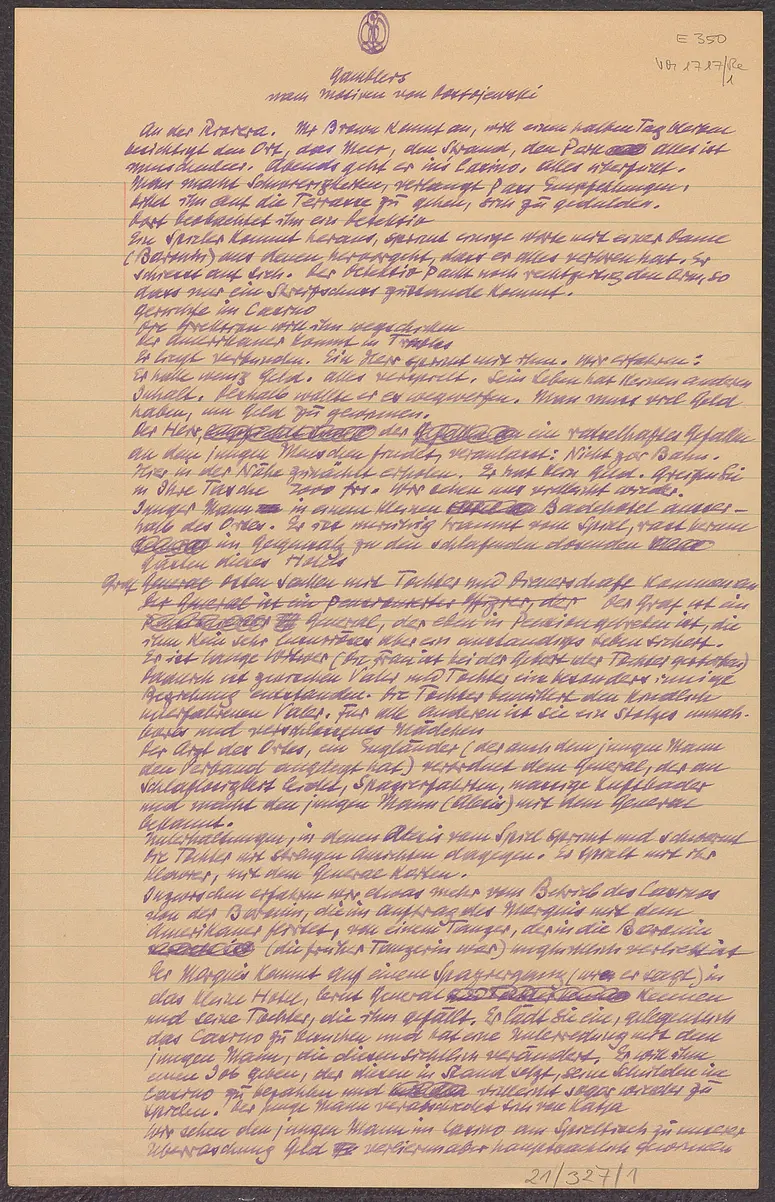 E 350
Gamblers
nach Motiven von Dostojewski
An der Riviera. Mr Brown kommt an, will einen halben Tag bleiben
besichtigt den Ort, das Meer, den Strand, den Park alles ist
wunderbar. Abends geht er ins Casino. Alles überfüllt.
Man macht Schwierigkeiten, verlangt Pass Empfehlungen,
bittet ihn auf die Terrasse zu gehen, sich zu gedulden.
Dort beobachtet ihn ein Detektiv
Ein Spieler kommt heraus, spricht einige Worte mit einer Dame
(Baronin) aus denen hervorgeht, dass er alles verloren hat. Er
schiesst auf sich. Der Detektiv packt noch rechtzeitig den Arm, so
dass nur ein Streifschuss zustande kommt.
Gerüchte im Casino
Die Direktion will ihn wegschicken
Der Amerikaner kommt in
Er liegt verbunden. Ein Herr spricht mit ihm. Wir erfahren:
Er hatte wenig Geld. Alles verspielt. Sein Leben hat keinen anderen
Inhalt. Deshalb wollte er es wegwerfen. Man muss viel Geld
haben, um Geld zu gewinnen.
Der Herr der ein rätselhaftes Gefallen
an dem jungen Menschen findet, veranlasst: Nicht zur Bahn.
Hier in der Nähe zunächst erholen. Er hat kein Geld. Greifen Sie
in Ihre Tasche 2000 frs. Wir sehen uns vielleicht wieder.
Junger Mann in einem kleinen Badehotel ausser-
halb des Ortes. Er ist unruhig träumt vom Spiel, rast herum
im Gegensatz zu den schlafenden dösenden
Gästen dieses Hotels
Graf General Osten Sacken mit Tochter und Dienerschaft kommen an
Der General ist ein pensionierter Offizier, der Der Graf ist ein
General, der eben in Pension gegangen ist, die
ihm kein sehr luxuriöses aber ein anständiges Leben sichert.
Er ist lange Witwer (die Frau ist bei der Geburt der Tochter gestorben)
Dadurch ist zwischen Vater und Tochter eine besonders innige
Beziehung entstanden. Die Tochter bemuttert den kindlich
unerfahrenen Vater. Für alle anderen ist sie ein stolzes unnah-
bares und verschlossenes Mädchen
Der Arzt des Ortes, ein Engländer (der auch dem jungen Mann
den Verband angelegt hat) verordnet dem General, der an
Schlaflosigkeit leidet, Spazierfahrten, mässige Luftbäder
und macht den jungen Mann (Alexis) mit dem General
bekannt.
Unterhaltungen, in denen Alexis vom Spiel spricht und schwärmt
Die Tochter mit strengen Ansichten dagegen. Er spielt mit ihr
Klavier, mit dem General Karten.
Inzwischen erfahren wir etwas mehr vom Betrieb des Casinos
von der Baronin, die im Auftrag des Marquis mit dem
Amerikaner flirtet, von einem Tänzer, der in die Baronin
(die früher Tänzerin war) unglücklich verliebt ist
Der Marquis kommt auf einem Spaziergang (wie er sagt) in
das kleine Hotel, lernt General kennen
und seine Tochter, die ihm gefällt. Er lädt sie ein, gelegentlich
das Casino zu besuchen und hat eine Unterredung mit dem
jungen Mann, die diesen sichtlich verändert. Er will ihm
einen Job geben, der diesen in Stand setzt, seine Schulden im
Casino zu bezahlen und vielleicht sogar wieder zu
spielen. Der junge Mann verabschiedet sich von Katja
Wir sehen den jungen Mann im Casino am Spieltisch zu unserer
Überraschung Geld verlieren aber hauptsächlich gewinnen
21/327/1